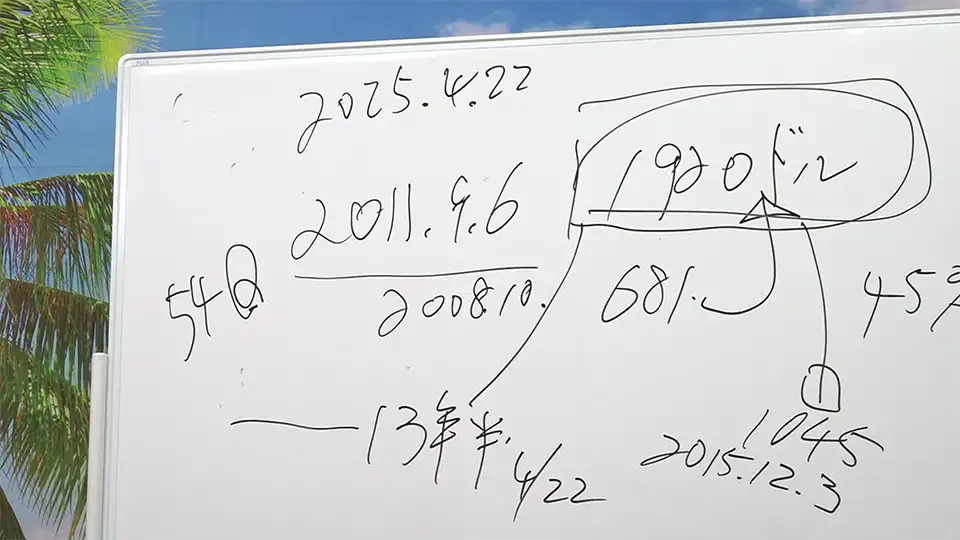 2025.4.22
2011.9.6
1920ドル
2008.10.
681.
45%
54Q
13年半.
4/22
1045
2015.12.3